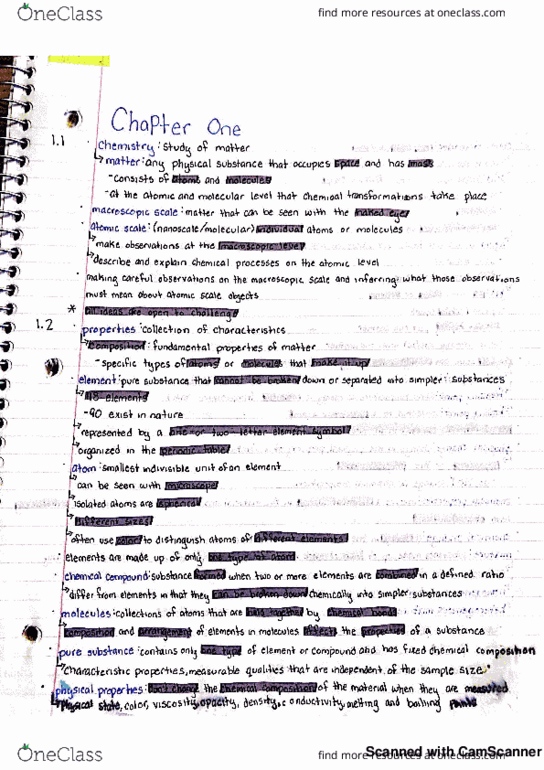 OneClass
find more resources at oneclass.com
Chapter One
1.1
chemistry: study of matter
matter: any physical substance that occupies space and has mass
- consists of atoms and molecules
- at the atomic and molecular level that chemical transformations take place
macroscopic scale: matter that can be seen with the naked eye
atomic scale: (nanoscale/molecular) individual atoms or molecules
make observations at the macroscopic level
describe and explain chemical processes on the atomic level
making careful observations on the macroscopic scale and inferring what those observations
must mean about atomic scale objects
* all ideas are open to challenge
1.2
properties: collection of characteristics
composition: fundamental properties of matter
- specific types of atoms or molecules that make it up
element: pure substance that cannot be broken down or separated into simpler substances
118 elements
- 90 exist in nature
represented by a one or two-letter element symbol
organized in the periodic table
atom: smallest indivisible unit of an element
can be seen with microscope
isolated atoms are spherical
different sizes
often use color to distinguish atoms of different elements
elements are made up of only one type of atom
chemical compound: substance formed when two or more elements are combined in a defined ratio
differ from elements in that they can be broken down chemically into simpler substances
molecules: collections of atoms that are held together by chemical bonds
composition and arrangement of elements in molecules affects the properties of a substance
pure substance: contains only one type of element or compound and has fixed chemical composition
characteristic properties, measurable qualities that are independent of the sample size
physical properties: don't change the chemical composition of the material when they are measured
physical state, color, viscosity, opacity, density, conductivity, melting and boiling points
OneClass
find more resources at oneclass.com
Scanned with CamScanner